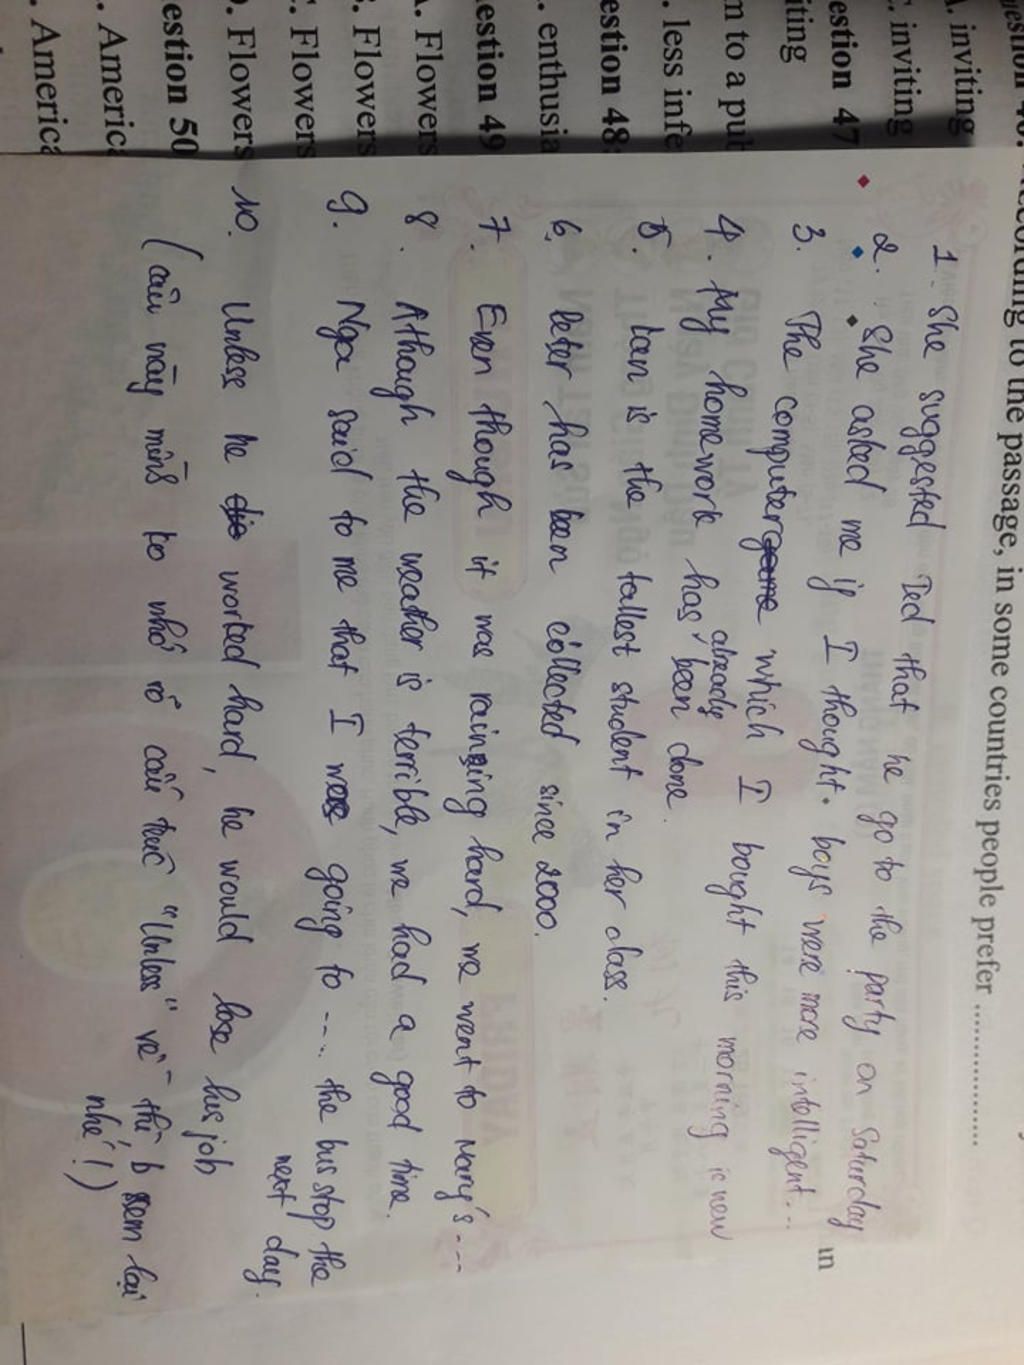 uestion 46: According to the passage, in some countries people prefer ..................
A. inviting
C. inviting
estion 47
iting
m to a pul
. less infe
estion 48:
.. enthusia
estion 49
A. Flowers
3. Flowers
C. Flowers
D. Flowers
estion 50
.. Americ
. America
in
1. She suggested Ted that he go to the party on Saturday
2. She asked me if I thought boys were more intelligent...
3. The computer game which I bought this morning is new
4. My homework has already been done.
5. Lan is the tallest student in her class.
6. Peter has been collected since 2000.
7. Even though it was raining hard, we went to Mary's ---
8. Although the weather is terrible, we had a good time.
9. Nga said to me that I was going to ---. the bus stop the
next day.
10. Unless he worked hard, he would lose his job
(câu này mình ko nhớ rõ cấu trúc "Unless" về thì b xem lại
nhé!)